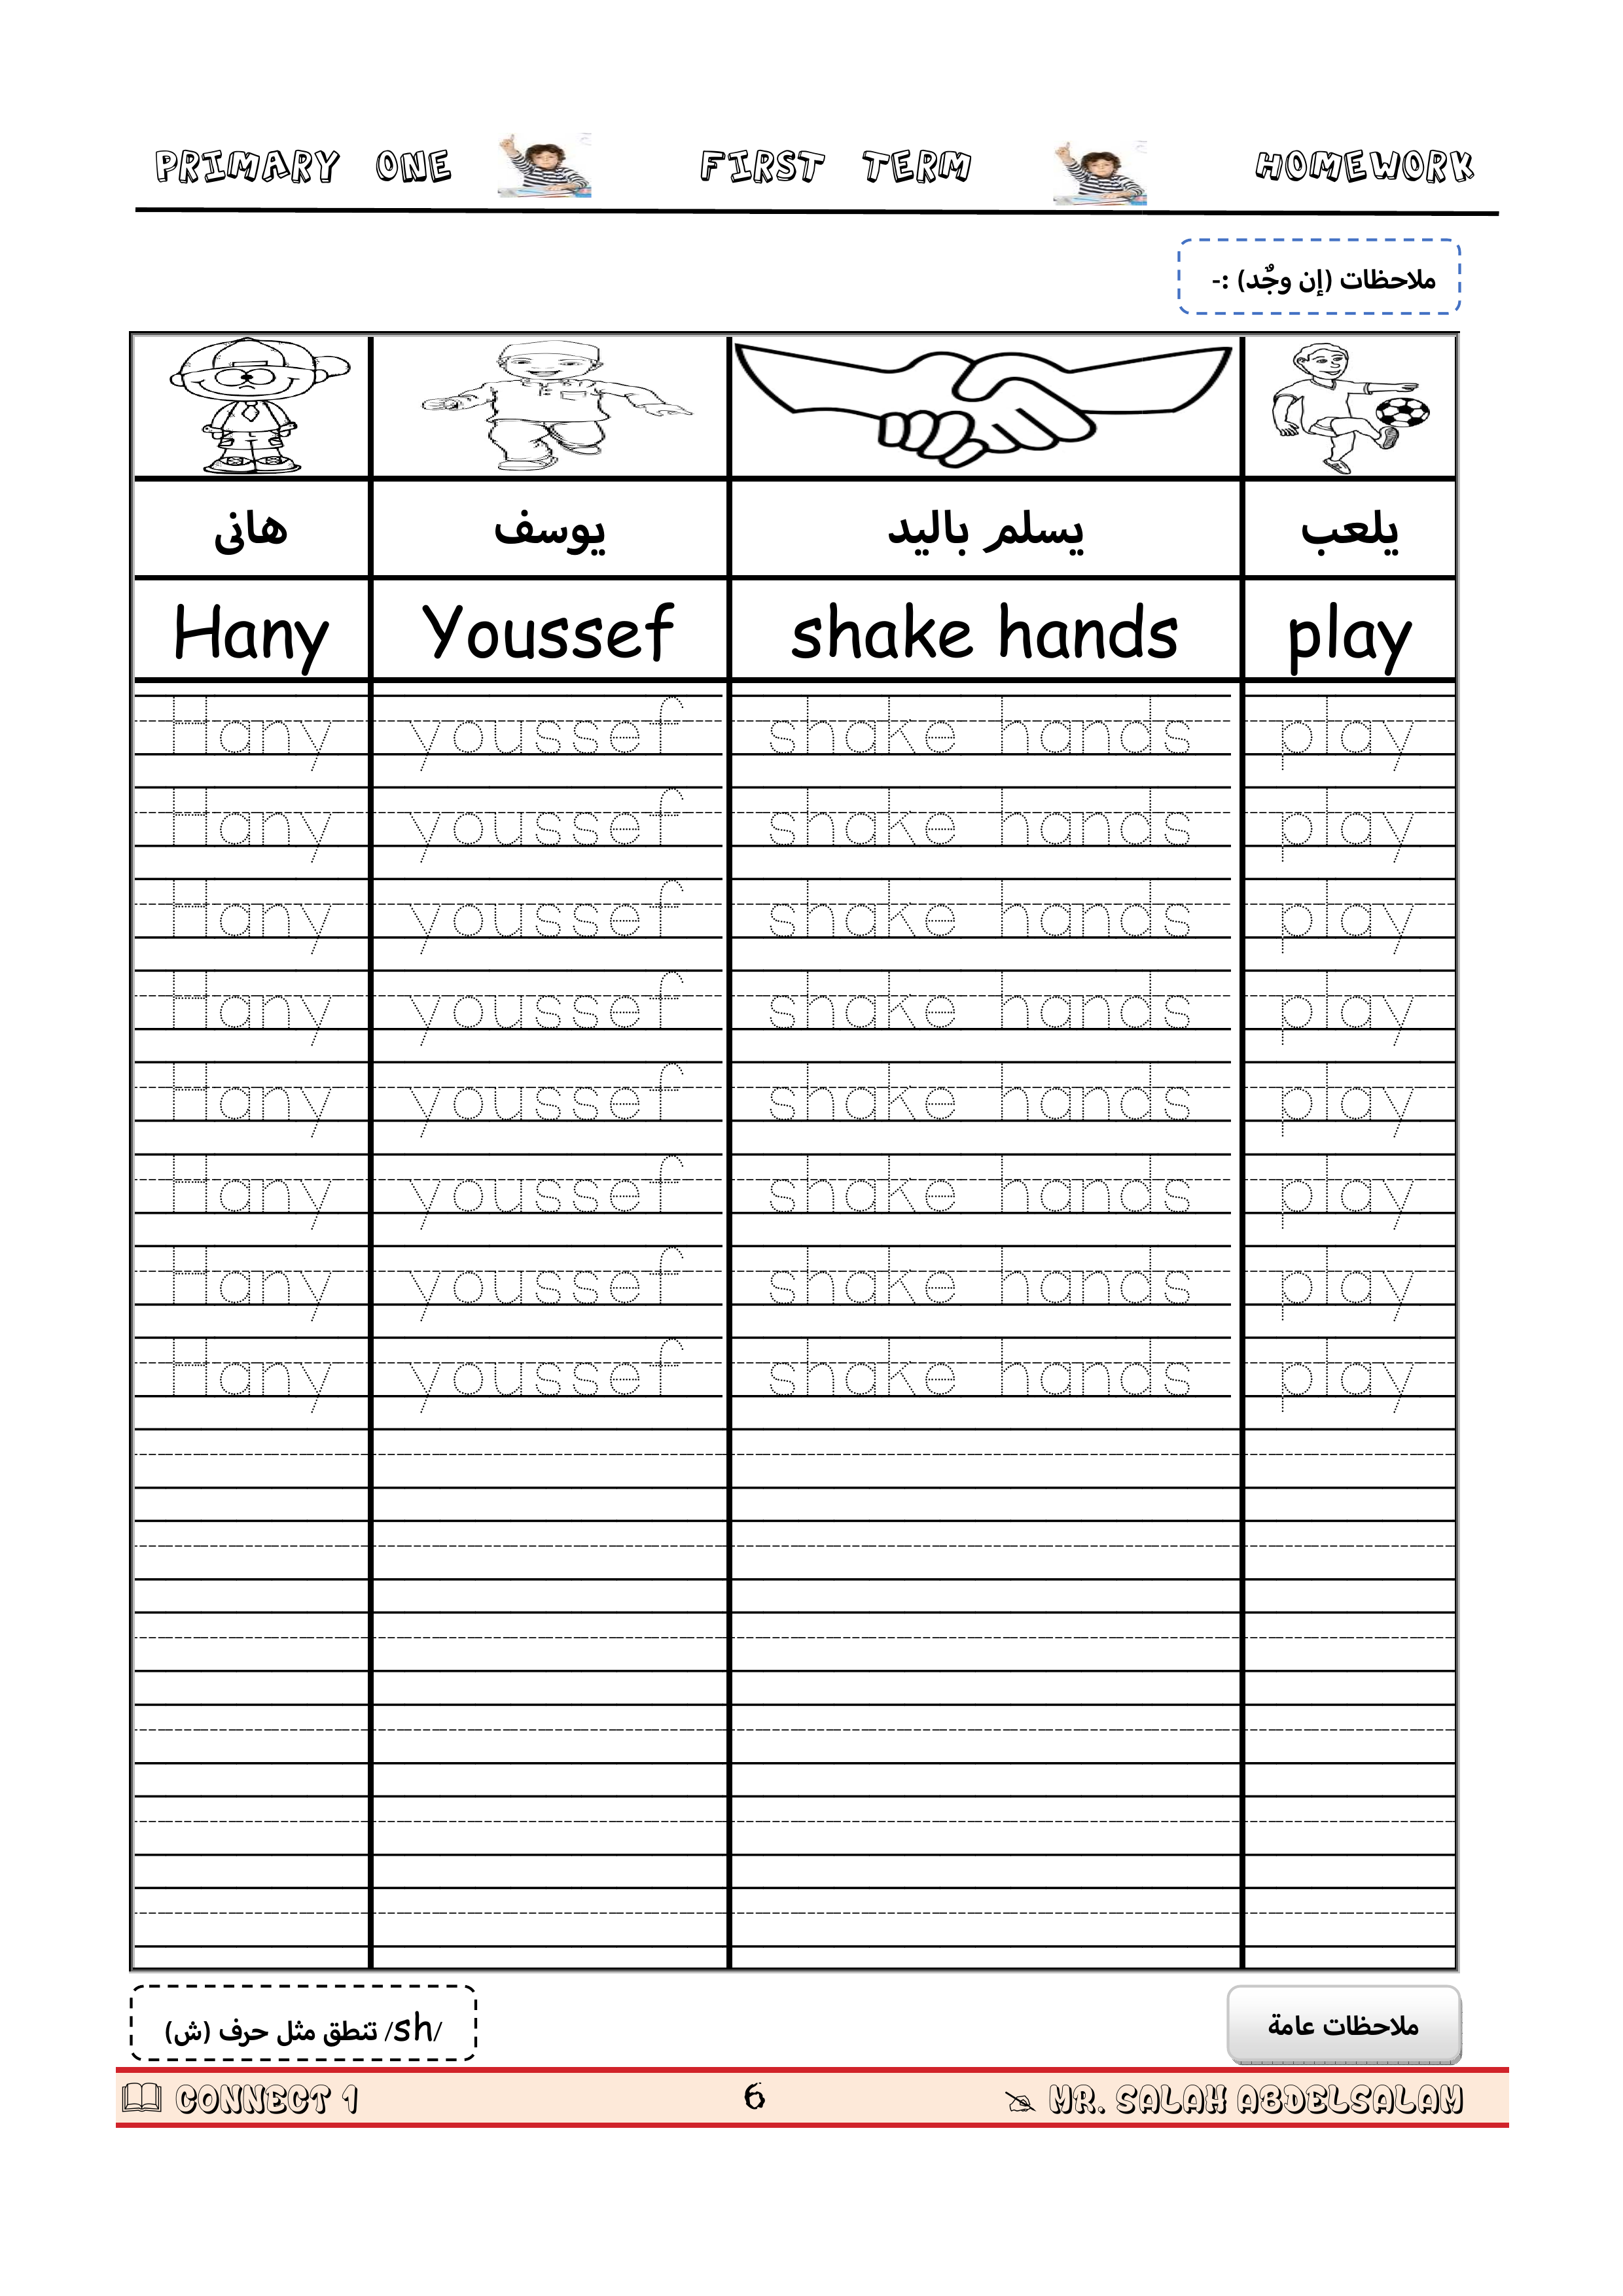 PRIMARY ONE FIRST TERM HOMEWORK
ملاحظات (إن وجٌد) :-
هانى يوسف يسلم باليد يلعب
Hany Youssef shake hands play
Hany youssef shake hands play
Hany youssef shake hands play
Hany youssef shake hands play
Hany youssef shake hands play
Hany youssef shake hands play
Hany youssef shake hands play
Hany youssef shake hands play
Hany youssef shake hands play
/sh/ تنطق مثل حرف (ش)
ملاحظات عامة
CONNECT 1 6 MR. SALAH ABDELSALAM